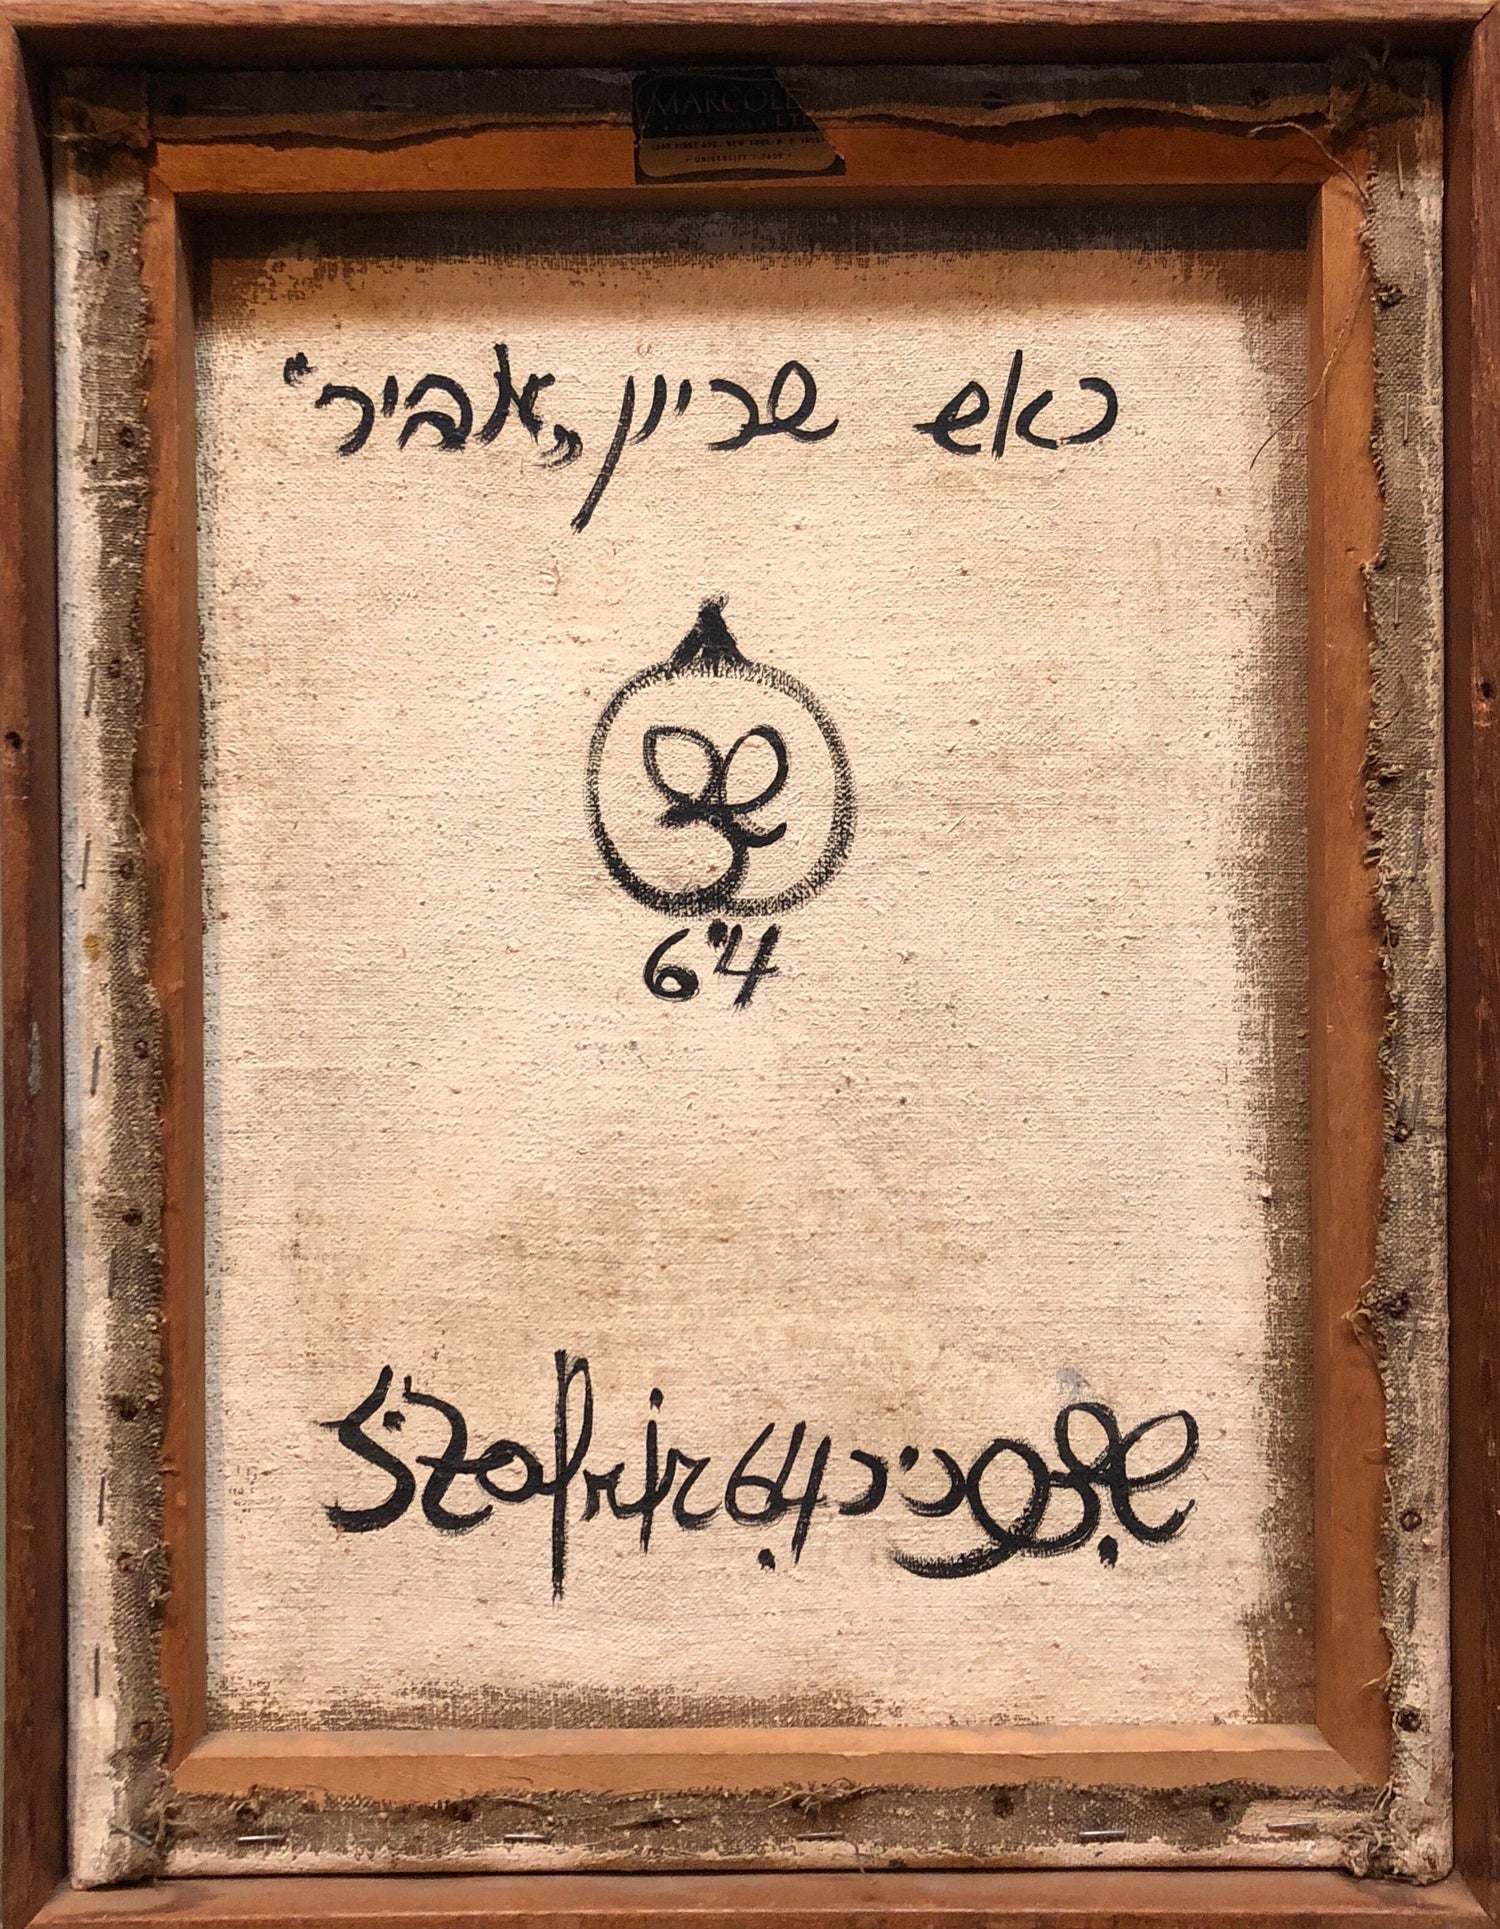 MARCOLE
LT
FIRST AVE., NEW YORK, N. Y.
• UNIVERSITY
ראש שריון „אביר"
6"4
Szafrir 64 שפריר